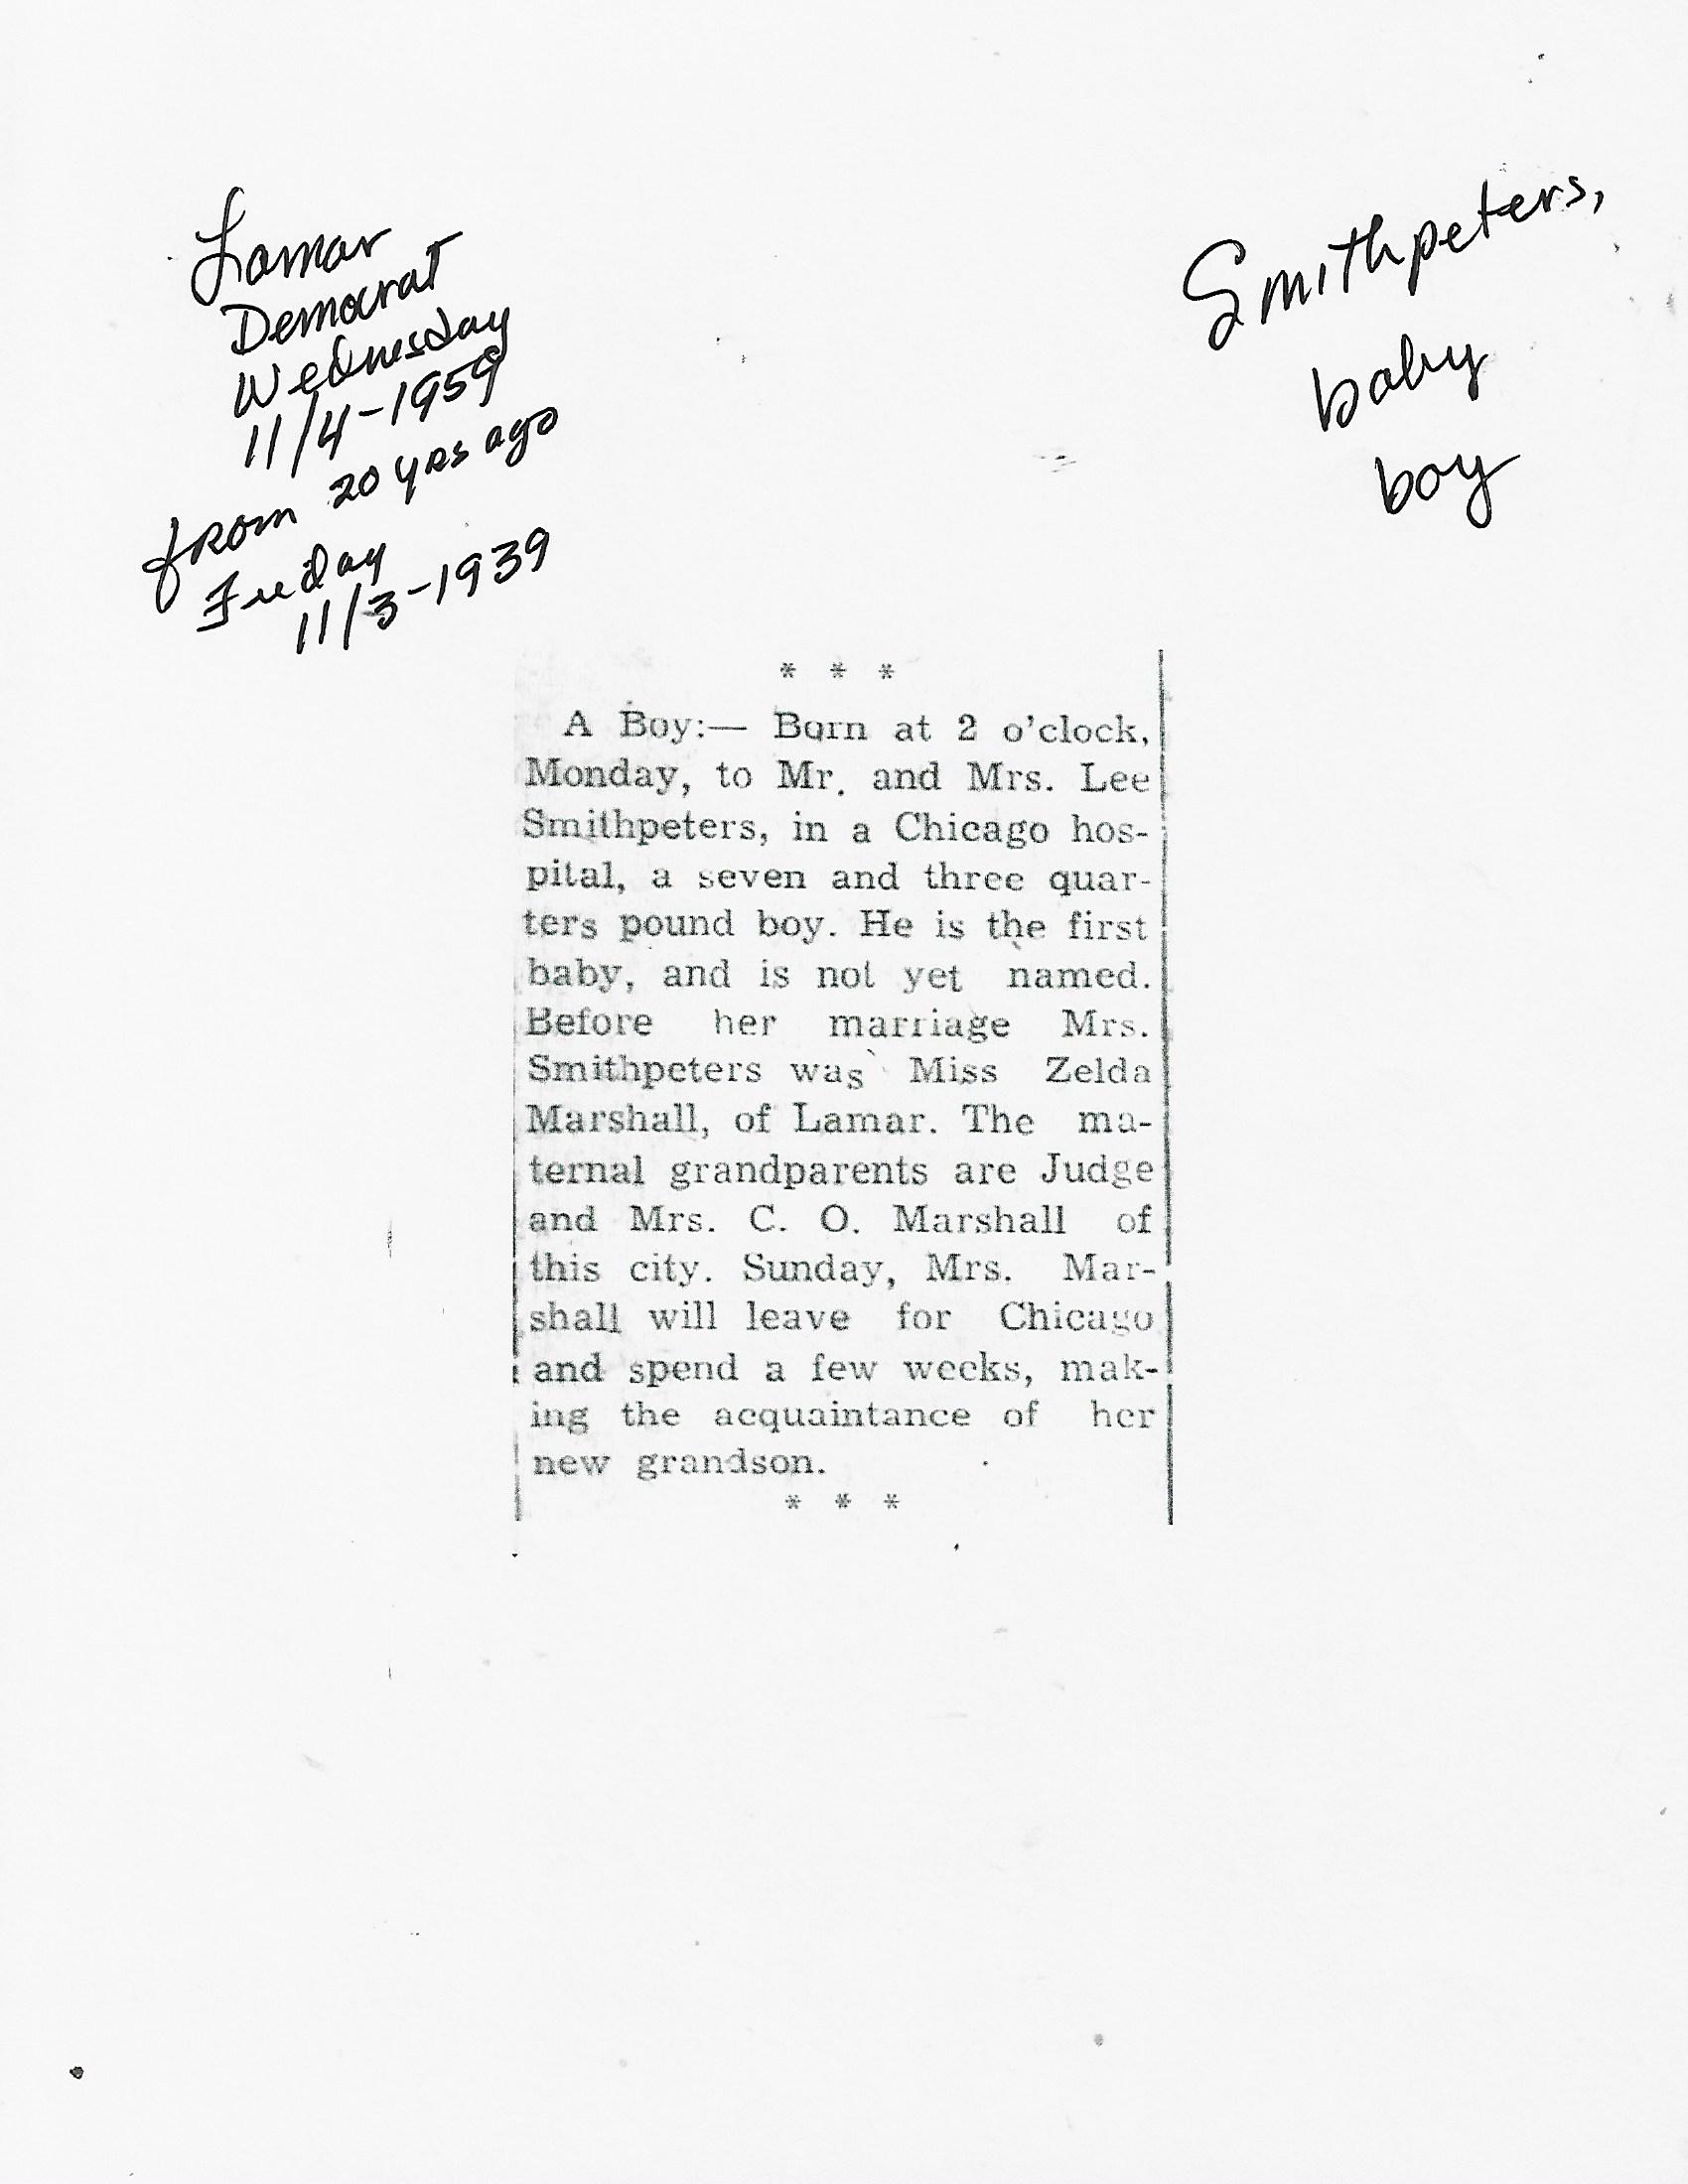 Lamar
Democrat
Wednesday
11/4-1959
from 20 yrs ago
Friday
11/3-1939
Smithpeters,
baby
boy
* * *
A Boy:— Born at 2 o'clock,
Monday, to Mr. and Mrs. Lee
Smithpeters, in a Chicago hos-
pital, a seven and three quar-
ters pound boy. He is the first
baby, and is not yet named.
Before her marriage Mrs.
Smithpeters was Miss Zelda
Marshall, of Lamar. The ma-
ternal grandparents are Judge
and Mrs. C. O. Marshall of
this city. Sunday, Mrs. Mar-
shall will leave for Chicago
and spend a few weeks, mak-
ing the acquaintance of her
new grandson.
* * *